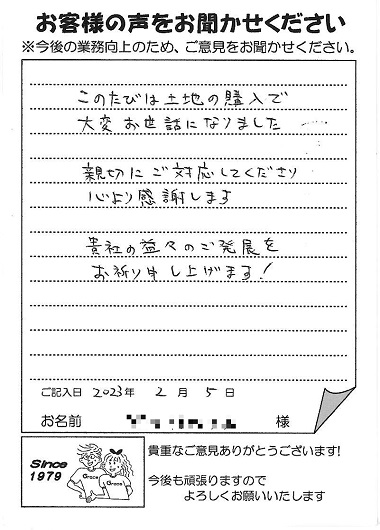 お客様の声をお聞かせください
※今後の業務向上のため、ご意見をお聞かせください。
このたびは土地の購入で
大変お世話になりました
親切にご対応してくださり
心より感謝します
貴社の益々のご発展を
お祈り申し上げます!
ご記入日 2023年 2月 5日
お名前 様
Since
1979
Grace
Grace
貴重なご意見ありがとうございます!
今後も頑張りますので
よろしくお願いいたします